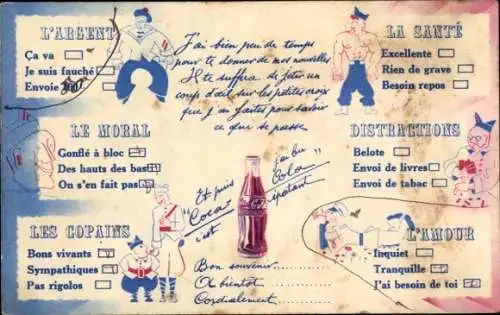 L'ARGENT
Ça va
Je suis fauché
Envoie
LE MORAL
Gonflé à bloc
Des hauts des bas
On s'en fait pas
LES COPAINS
Bons vivants
Sympathiques
Pas rigolos
J'ai bien peu de temps
pour te donner de mes nouvelles
Il te suffira de jeter un
coup d'œil sur les petites croix
que j'ai faites pour savoir
ce que se passe
Et puis j'ai bu
"Coca Cola"
c'est épatant
Bon souvenir
A bientôt
Cordialement
LA SANTÉ
Excellente
Rien de grave
Besoin repos
DISTRACTIONS
Belote
Envoi de livres
Envoi de tabac
L'AMOUR
Inquiet
Tranquille
J'ai besoin de toi